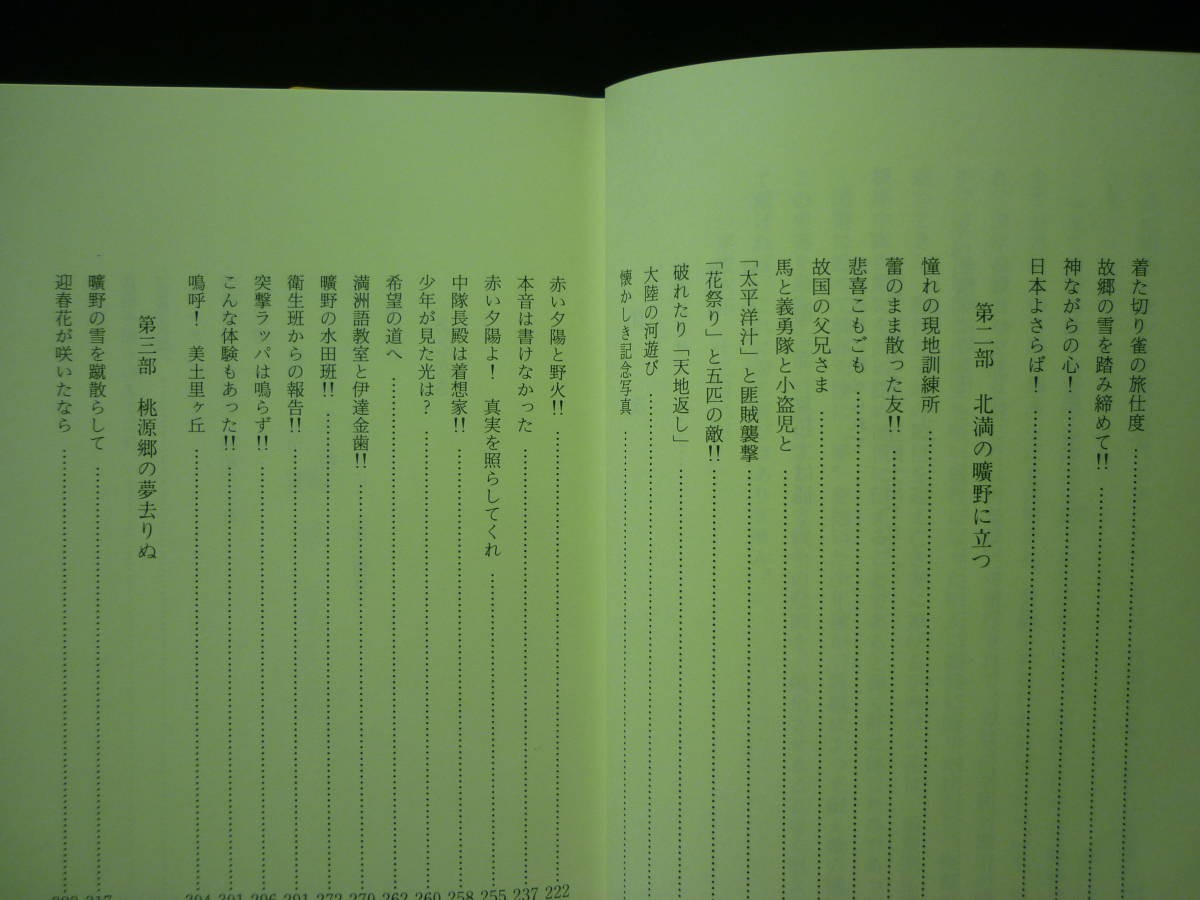 着た切り雀の旅仕度
故郷の雪を踏み締めて!!
神ながらの心！
日本よさらば！
第二部 北満の曠野に立つ
憧れの現地訓練所
蕾のまま散った友!!
悲喜こもごも
故国の父兄さま
馬と義勇隊と小盗児と
「太平洋汁」と匪賊襲撃
「花祭り」と五匹の敵!!
破れたり「天地返し」
大陸の河遊び
懐かしき記念写真
赤い夕陽と野火!! 222
本音は書けなかった 237
赤い夕陽よ！ 真実を照らしてくれ 255
中隊長殿は着想家!! 258
少年が見た光は？ 260
希望の道へ 262
満洲語教室と伊達金歯!! 270
曠野の水田班!! 272
衛生班からの報告!! 291
突撃ラッパは鳴らず!! 296
こんな体験もあった!! 301
嗚呼！ 美土里ヶ丘 304
第三部 桃源郷の夢去りぬ
曠野の雪を蹴散らして 317
迎春花が咲いたなら